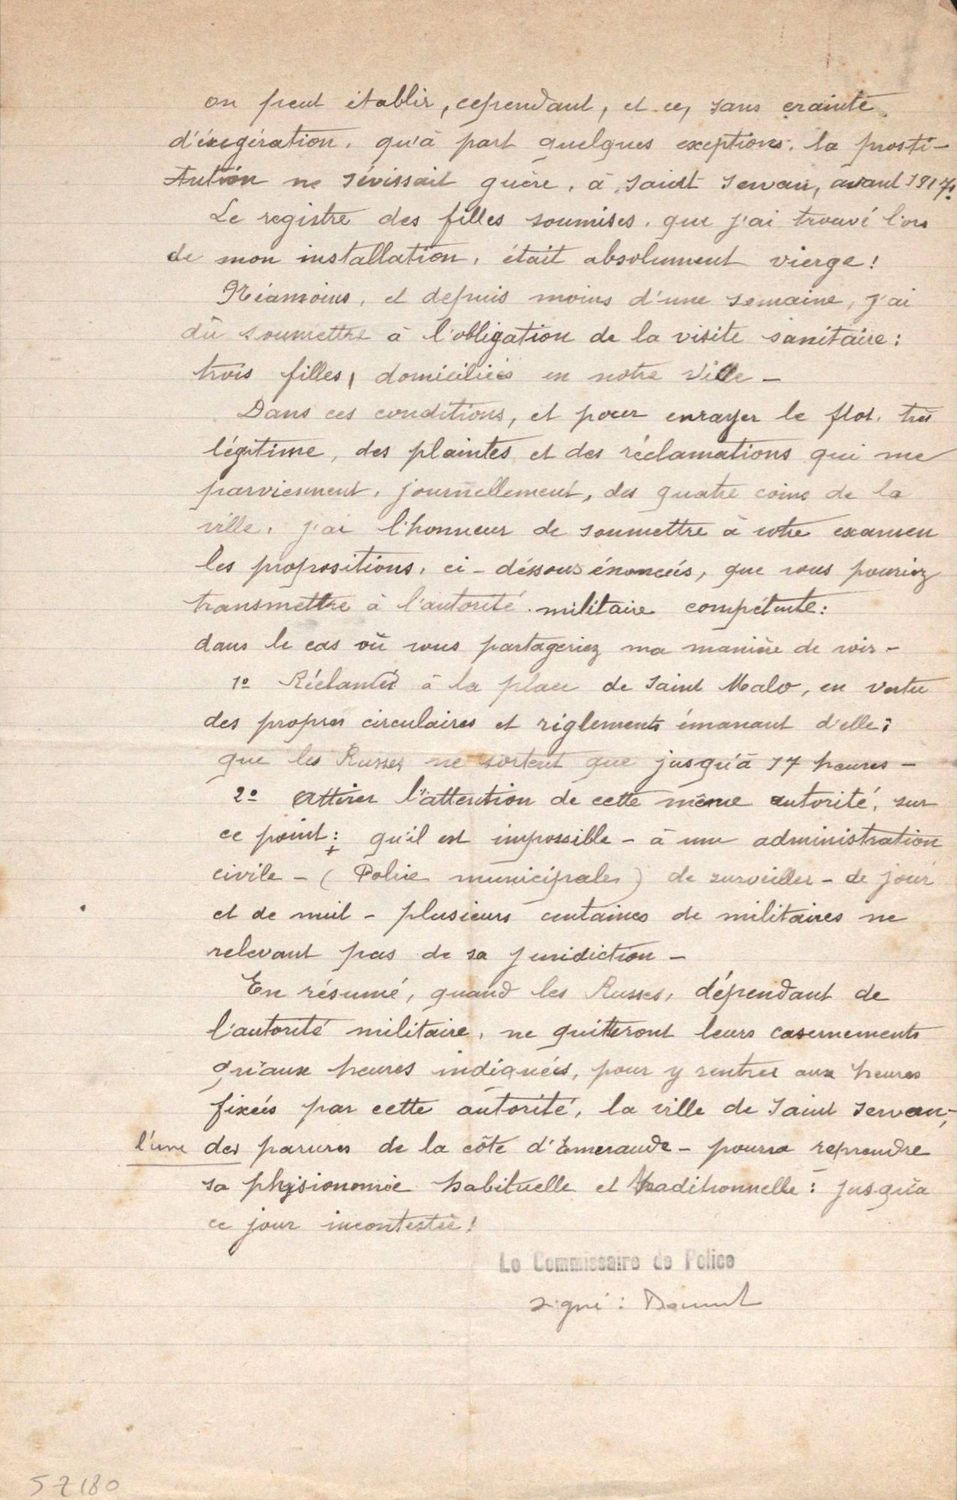 on peut établir, cependant, et ce, sans crainte
d'éxegération, qu'à part quelques exceptions, la prosti-
tution ne sévissait guère, à Saint Servan, avant 1917.
Le registre des filles soumises, que j'ai trouvé l'ors
de mon installation, était absolument vierge!
Néamoins, et depuis moins d'une semaine, j'ai
dû soumettre à l'obligation de la visite sanitaire:
trois filles, domiciliées en notre Ville -
Dans ces conditions, et pour enrayer le flot, très
légitime, des plaintes et des réclamations qui me
parviennent, journellement, des quatre coins de la
ville, j'ai l'honneur de soumettre à votre examen
les propositions, ci-déssous énoncées, que vous pouriez
transmettre à l'autorité militaire compétente:
dans le cas où vous partageriez ma manière de voir -
1º Réclamer à la place de Saint Malo, en vertu
des propres circulaires et réglements émanant d'elle;
que les Russes ne sortent que jusqu'à 17 heures -
2º Attirer l'attention de cette même autorité, sur
ce point: qu'il est impossible - à une administration
civile - (Police municipale) de surveiller - de jour
et de nuit - plusieurs centaines de militaires ne
relevant pas de sa juridiction -
En résumé, quand les Russes, dépendant de
l'autorité militaire, ne quitteront leurs casernements
qu'aux heures indiquées, pour y rentrer aux heures
fixées par cette autorité, la ville de Saint Servan,-
l'une des parures de la côte d'Émeraude - pourra reprendre
sa physionomie habituelle et traditionnelle: jusqu'à
ce jour incontestée!
Le Commissaire de Police
signé:
5 Z 180